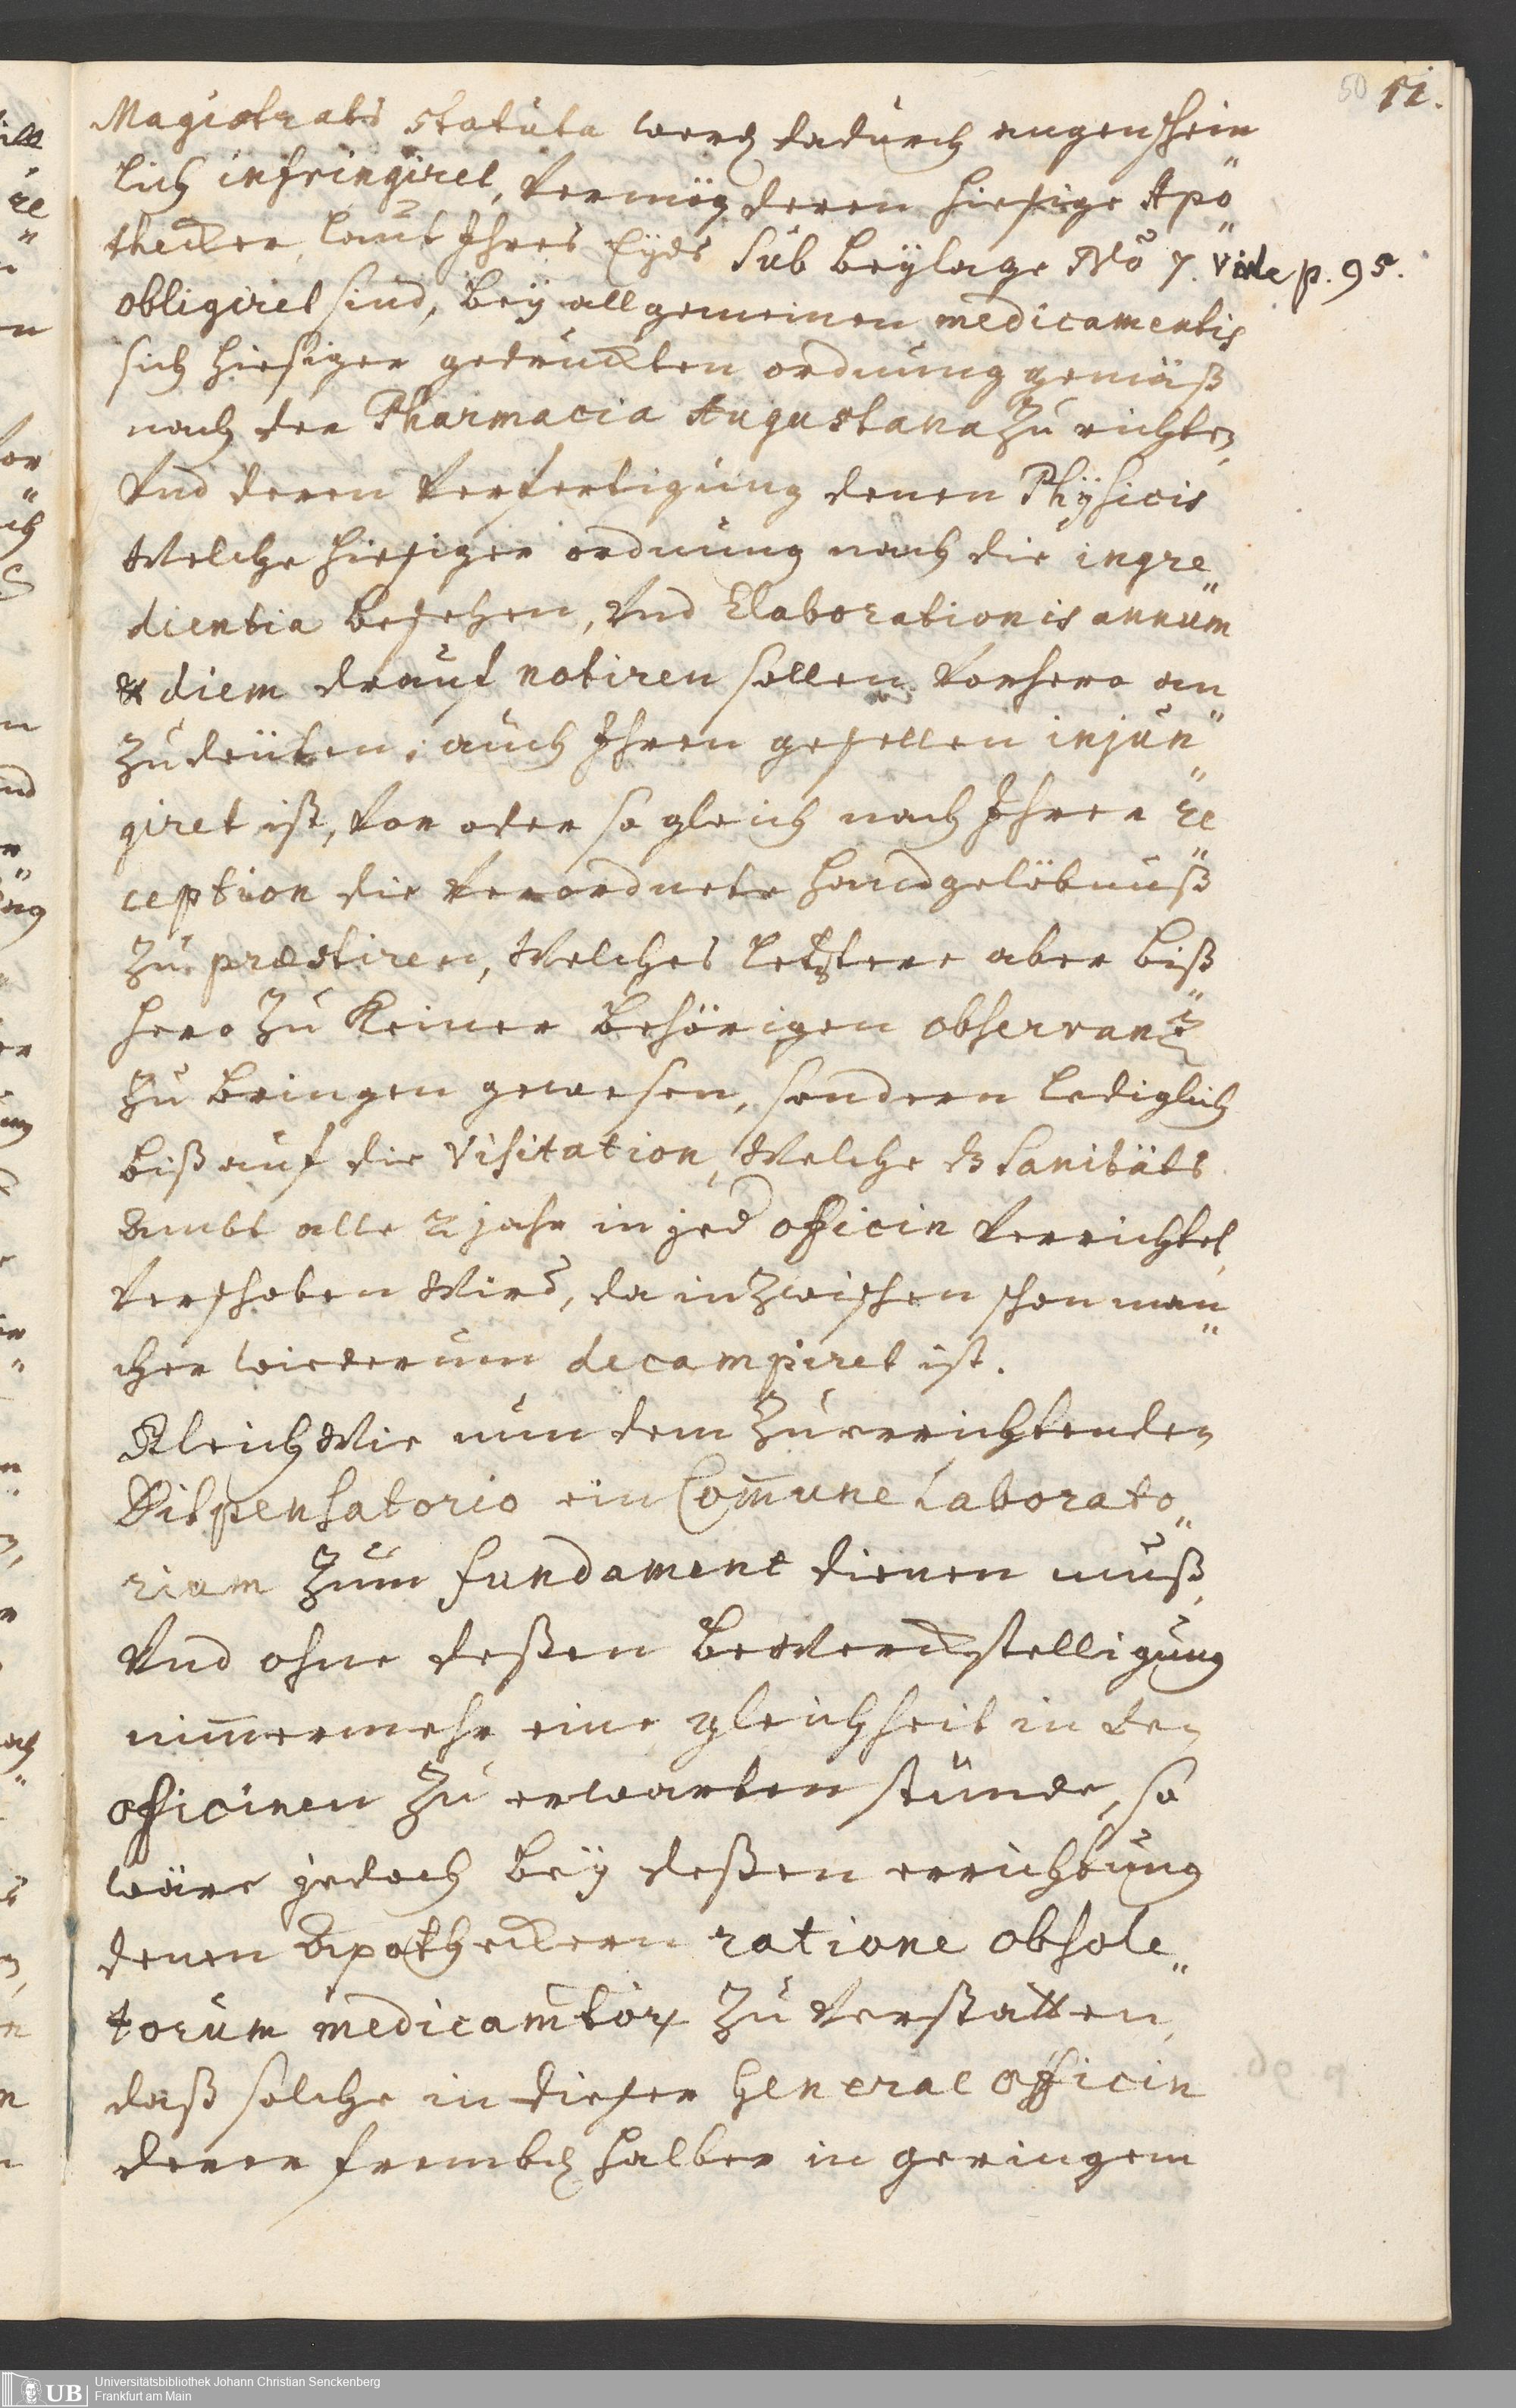 50 11.
Magistrats statuta werd dadurch augenschein
lich infringiret, Vermög deren hiesige Apo„
thecker laut Ihres Eyds sub beylage No 7. vide p. 95.
obligiret sind, bey allgemeinen medicamentis
sich hiesiger gedruckten ordnung gemäß
nach der Pharmacia Augustana zu richten,
Und deren Verfertigung denen Physicis
Welche hiesiger ordnung nach die ingre„
dientia besehen, Und Elaborationis annum
& diem drauf notiren sollen Vorhero an„
zudeüten; auch Ihren gesellen injun„
giret ist, Vor oder so gleich nach Ihrer re„
ception die Verordnete handgelöbnuß
zu præstiren, Welches letztere aber biß„
hero zu Keiner behörigen observanz
zu bringen gewesen, sondern lediglich
biß auf die Visitation, Welche d Sanitäts
Ambt alle 2 jahr in jed officin Verrichtet,
Verschoben Wird, da inzwischen schon man„
cher wiederum decampiret ist.
GleichWie nun dem zu errichtenden
Dispensatorio ein Com̄une Laborato„
rium zum fundament dienen muß,
Und ohne deßen beWerckstelligung
nim̄ermehr eine gleichheit in den
officinen zu erwarten stünde, so
wäre jedoch bey deßen errichtung
denen Apotheckern ratione obsole„
torum medicam̄tor zu Verstatten,
daß solche in dieser General officin
derer frembd halber in geringem
UB Universitätsbibliothek Johann Christian Senckenberg
Frankfurt am Main